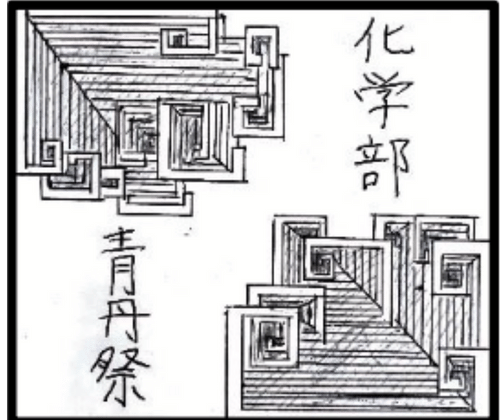 化学部
青丹祭